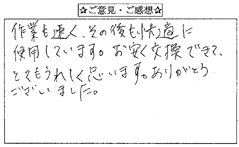 ☆ご意見・ご感想☆
作業も速く、その後も快適に
使用しています。お安く交換できて、
とてもうれしく思います。ありがとう
ございました。